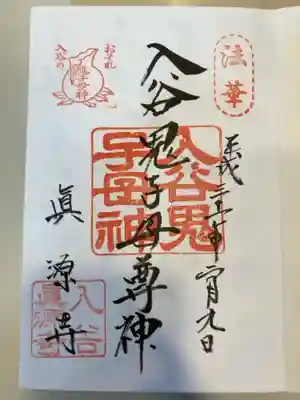 法華
平成三十年一月九日
入谷鬼子母尊神
入谷鬼
子母神
おそれ
入谷の
鬼子母神
眞源寺
入谷
眞源寺